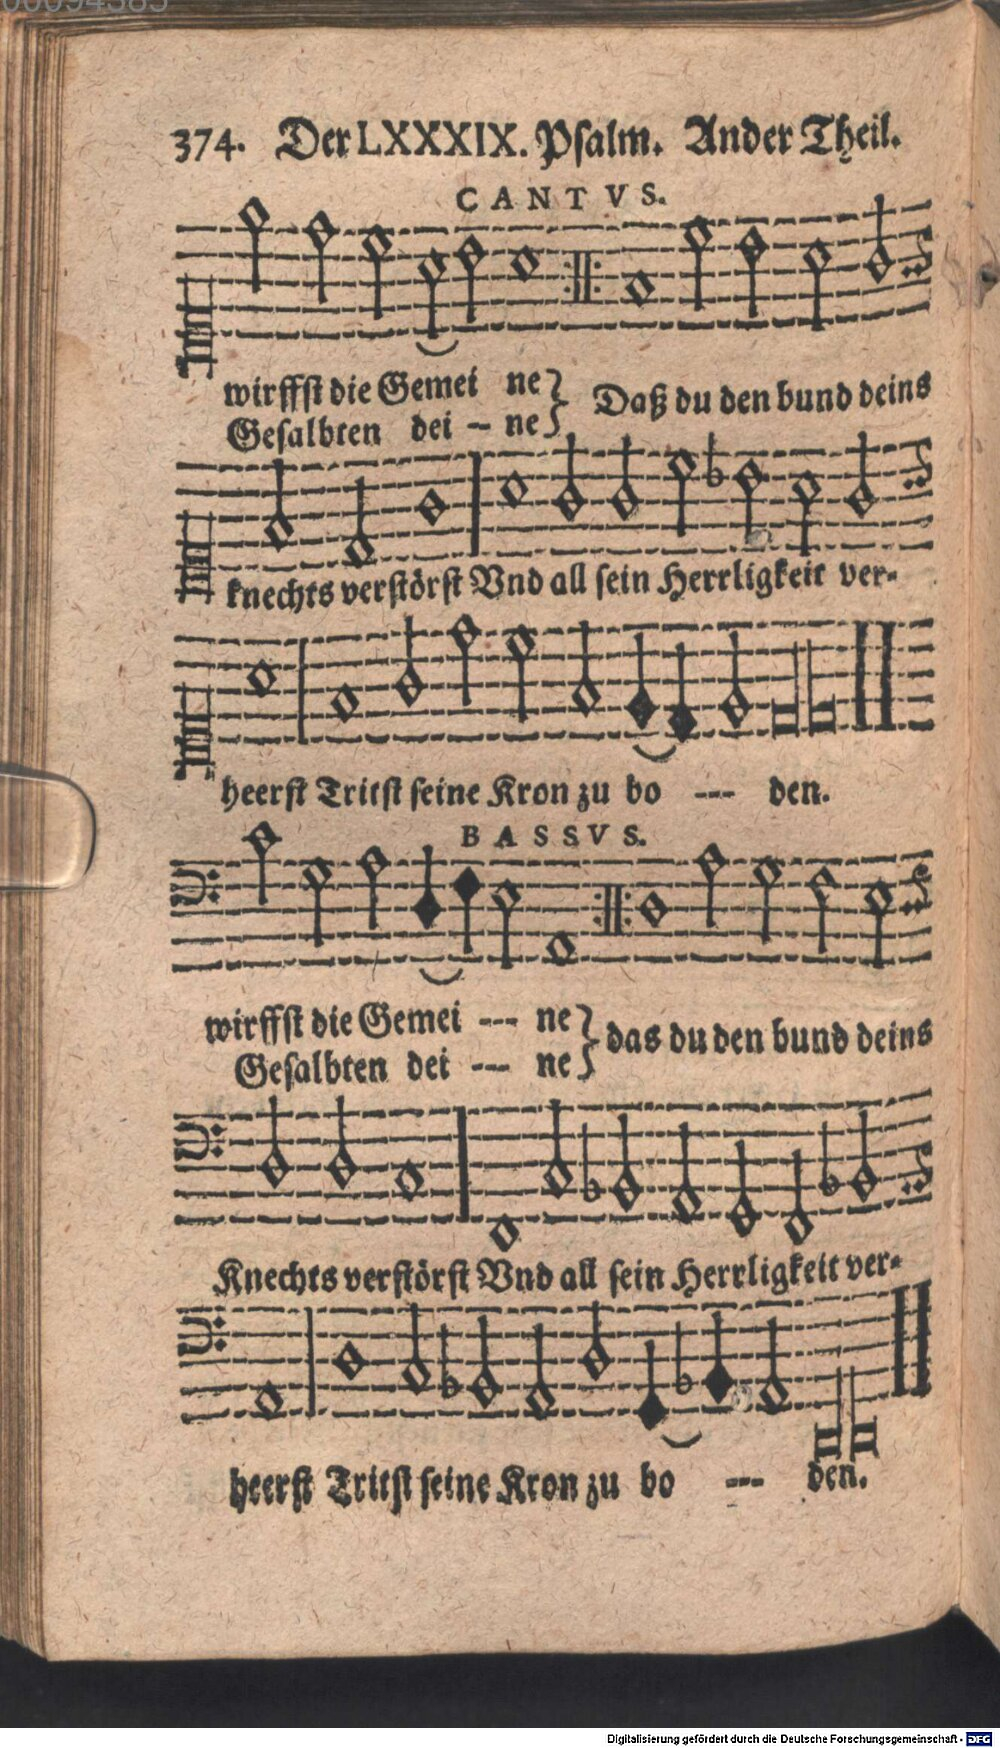 00094385
374. Der LXXXIX. Psalm. Ander Theil.
CANTVS.
wirffst die Gemei ne} Daß du den bund deins
Gesalbten dei - ne}
knechts verstörst Vnd all sein Herrligkeit ver-
heerst Tritst seine Kron zu bo --- den.
BASSVS.
wirffst die Gemei --- ne} das du den bund deins
Gesalbten dei --- ne}
Knechts verstörst Vnd all sein Herrligkeit ver-
heerst Tritst seine Kron zu bo --- den.
Digitalisierung gefördert durch die Deutsche Forschungsgemeinschaft - DFG